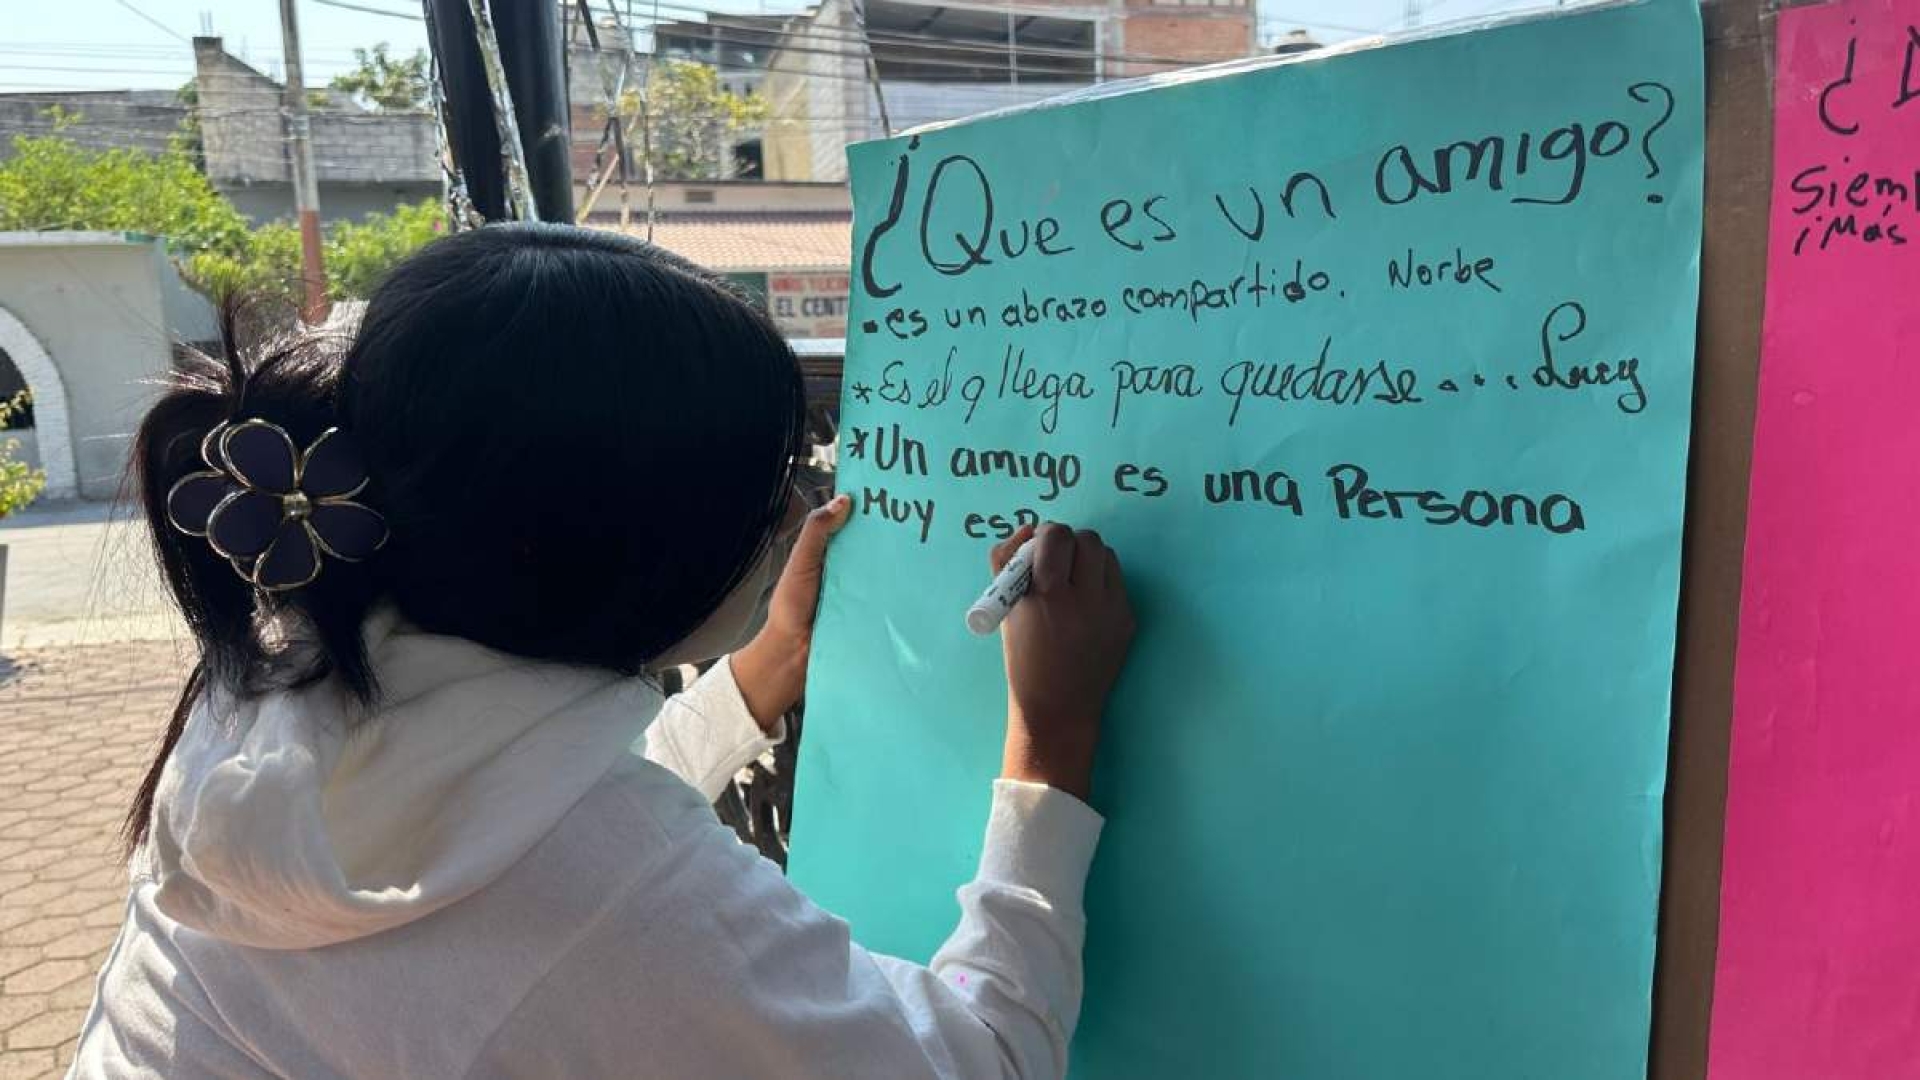 ¿Que es un amigo?
•es un abrazo compartido. Norbe
*Es el q llega para quedarse.... Lucy
*Un amigo es una Persona
Muy esp
¿
Siem
¡Más
EL CENT